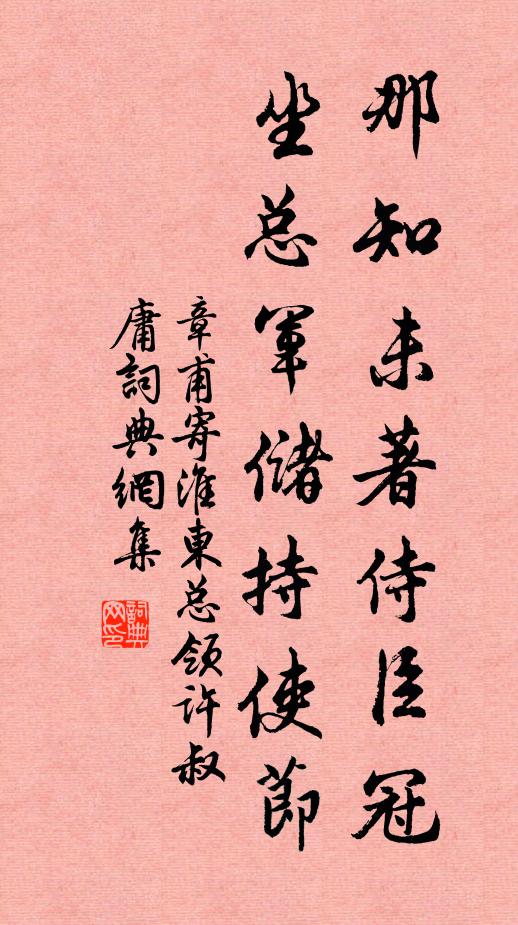 那知未著侍臣冠
坐总軍儲持使節
章甫寄淮東总領許叔
庸詞典網集
詞典网印